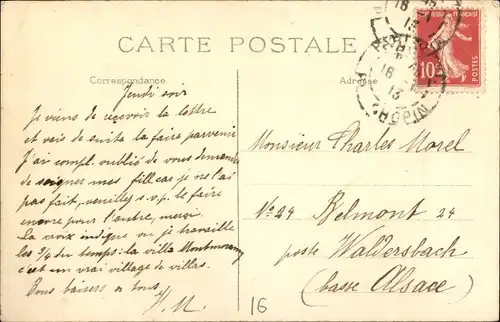 CARTE POSTALE
Correspondance
Adresse
RÉPUBLIQUE FRANÇAISE
10
POSTES
16
13
Jeudi soir
Je viens de recevoir la lettre
et vais de suite la faire parvenir
J'ai compl. oublié de vous demander
de soigner mes car je ne l'ai
pas fait, veuillez s.v.p. le faire
encore pour l'autre, merci
La croix indique où je travaille
les 3/4 du temps: la villa Montmorency
c'est un vrai village de villas.
Bons baisers à tous
H.M.
Monsieur Charles Morel
No 24 Belmont 24
poste Waldersbach
(basse Alsace)
16